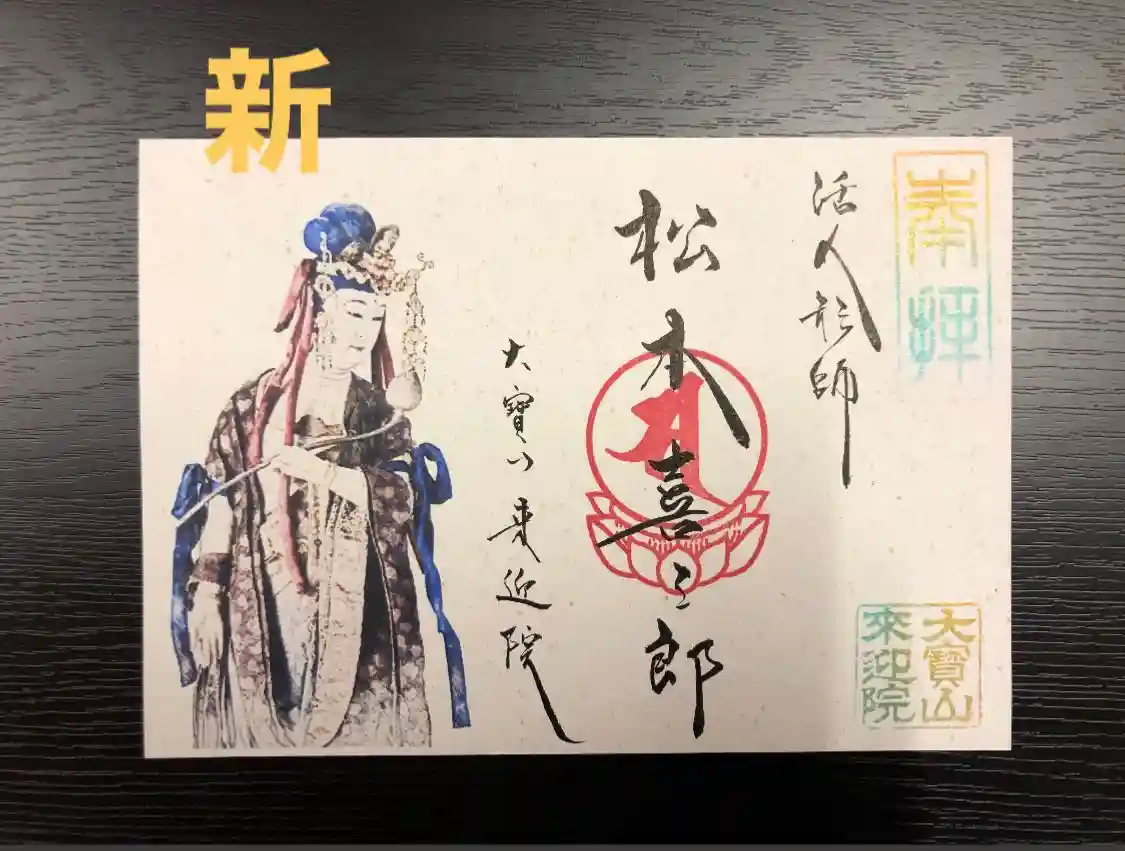 新
奉拝
活人形師
松本喜三郎
大寳山來迎院
大寳山
來迎院